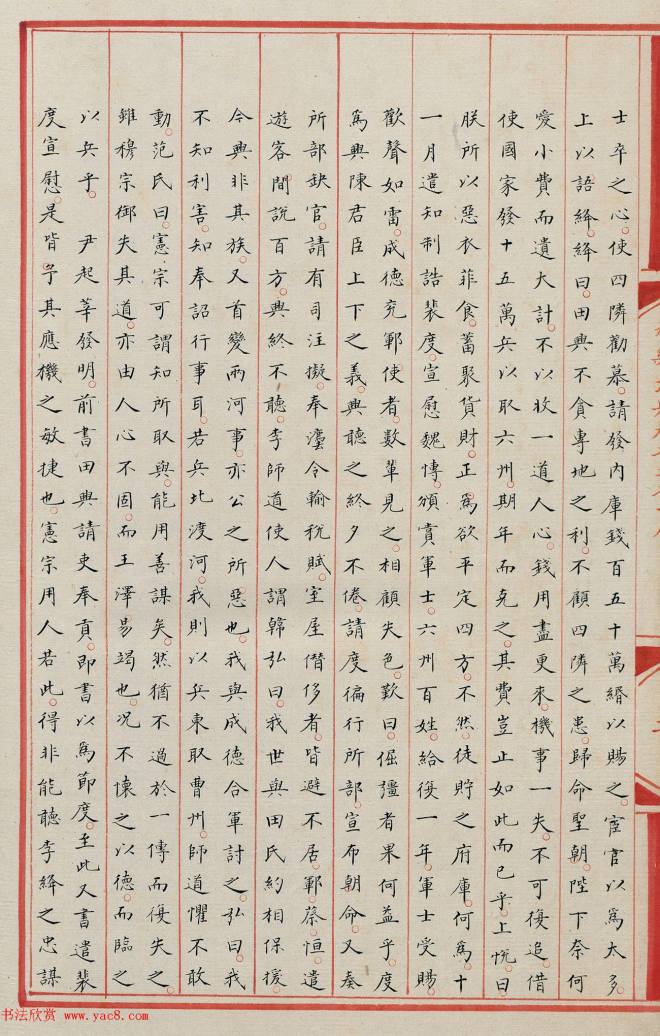 士卒之心。使四隣勸慕。請發內庫錢百五十萬緡以賜之。宦官以爲太多。
上以語絳。絳曰。田興不貪專地之利。不顧四隣之患。歸命聖朝。陛下奈何
愛小費而遺大計。不以收一道人心。錢用盡更來。機事一失。不可復追。借
使國家發十五萬兵以取六州。期年而克之。其費豈止如此而已乎。上悅。曰
朕所以惡衣菲食。蓄聚貨財。正爲欲平定四方。不然。徒貯之府庫。何爲。十
一月遣知制誥裴度。宣慰魏博。頒賞軍士。六州百姓。給復一年。軍士受賜。
歡聲如雷。成德兗鄆使者。數輩見之。相顧失色。歎曰。倔彊者果何益乎。度
爲興陳君臣上下之義。興聽之終夕不倦。請度徧行所部。宣布朝命。又奏
所部缺官。請有司注擬。奉灋令輸稅賦。室屋僭侈者。皆避不居。鄆。蔡。恒。遣
遊客。間說百方。興終不聽。李師道使人謂韓弘曰。我世與田氏約相保援。
今興非其族。又首變兩河事。亦公之所惡也。我與成德合軍討之。弘曰。我
不知利害。知奉詔行事耳。若兵北渡河。我則以兵東取曹州。師道懼不敢
動。范氏曰。憲宗可謂知所取與。能用善謀矣。然猶不過於一傳而復失之。
雖穆宗御失其道。亦由人心不固。而王澤易竭也。况不懷之以德。而臨之
以兵乎。尹起莘發明。前書田興請吏奉貢。即書以爲節度。至此又書遣裴
度宣慰。是皆予其應機之敏捷也。憲宗用人若此。得非能聽李絳之忠謀
书法欣赏 www.yac8.com